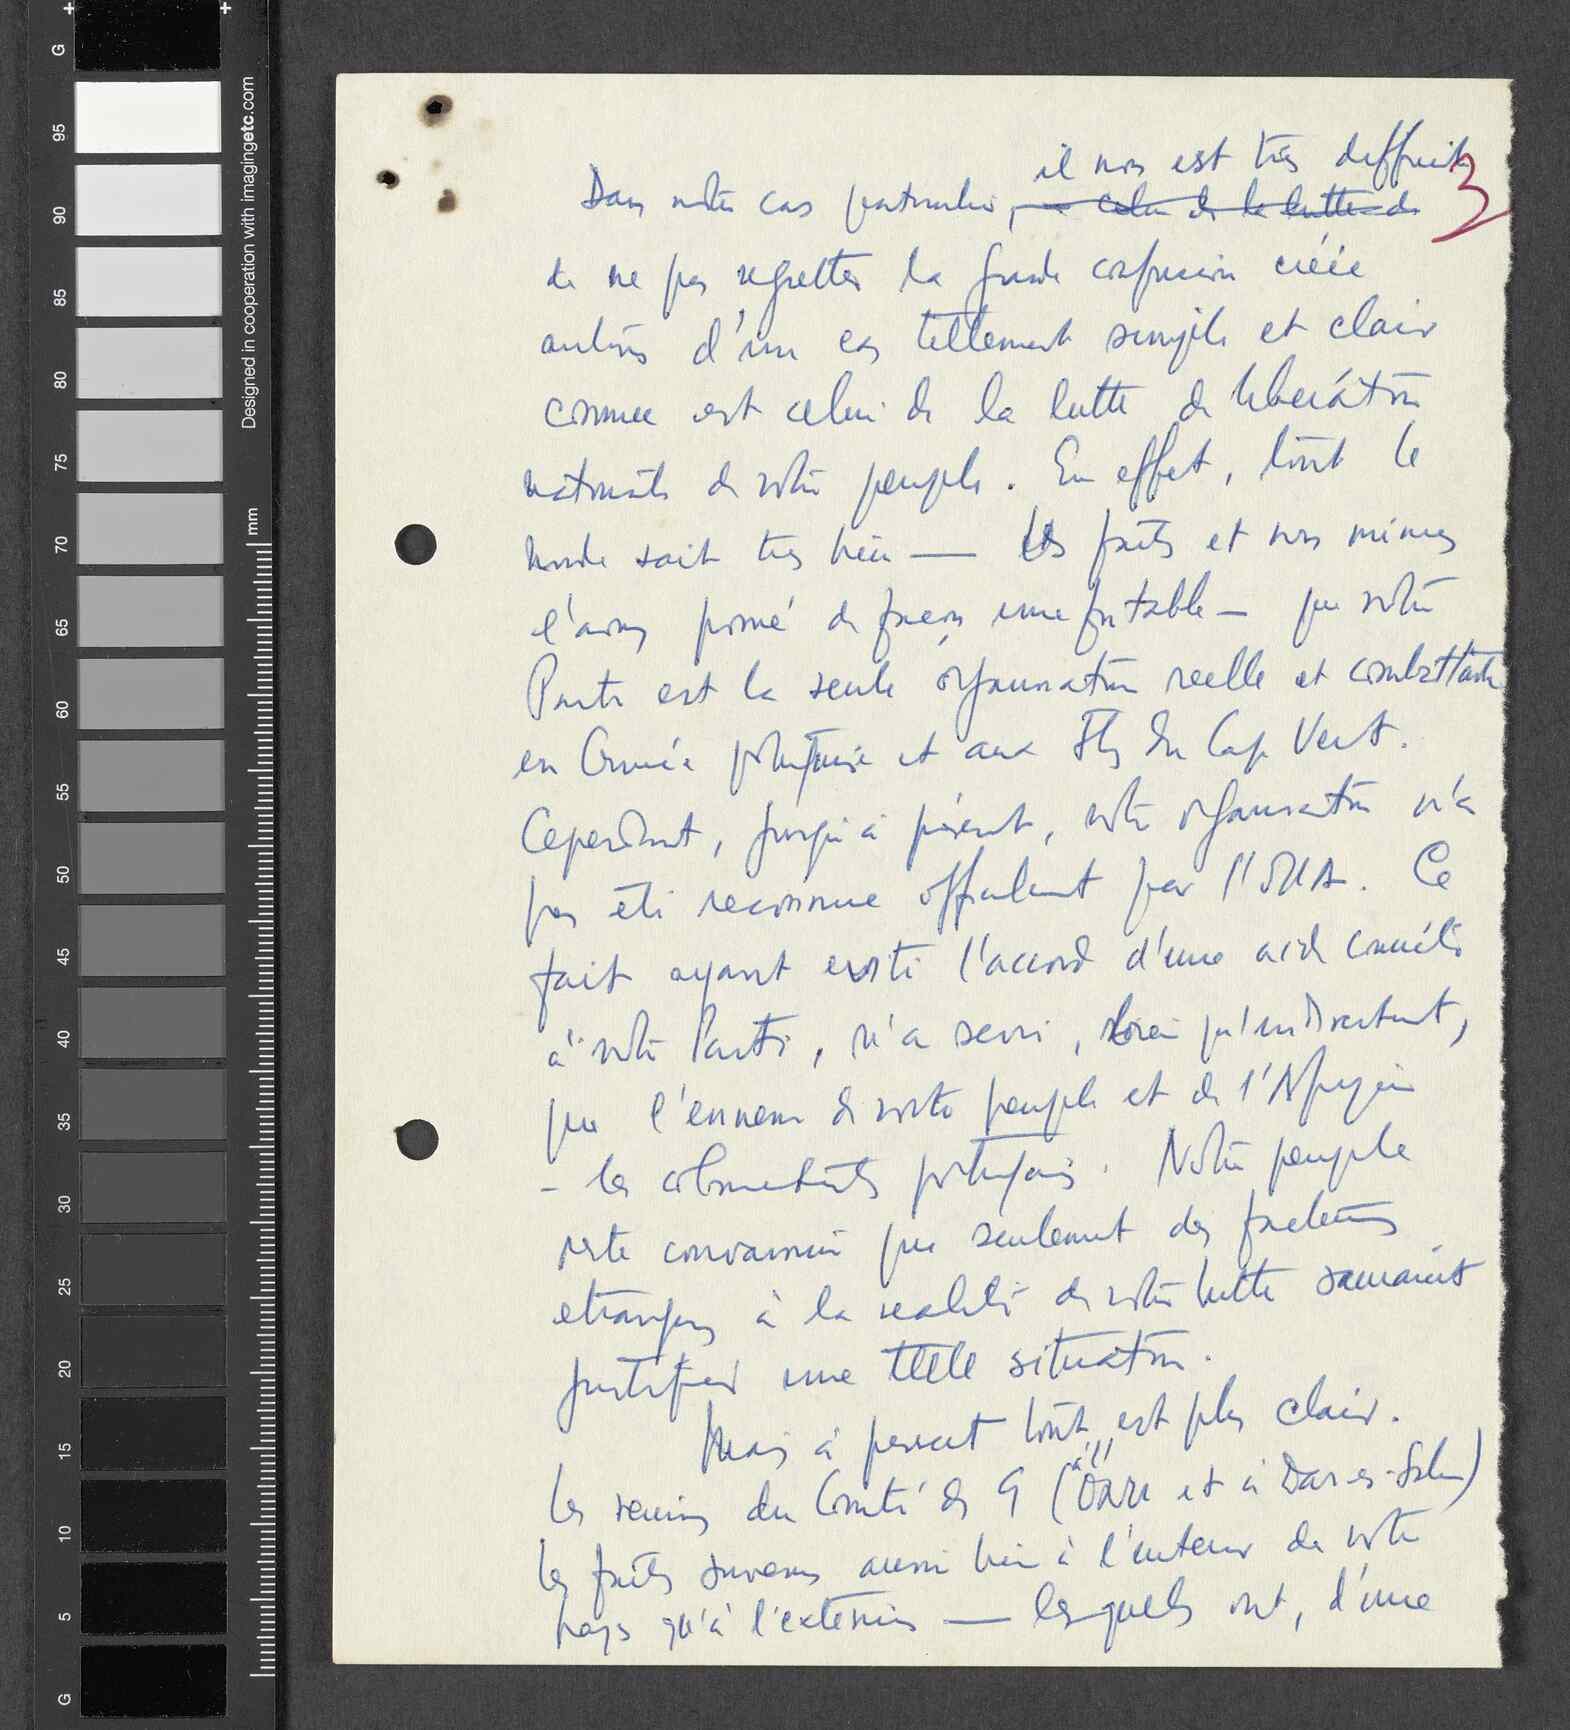 il nous est très difficile
3
Dans notre cas particulier, celui de la lutte de
de ne pas regretter la grande confusion créée
autour d'un cas tellement simple et clair
comme est celui de la lutte de libération
nationale de notre peuple. En effet, tout le
monde sait très bien — les faits et nous mêmes
l'avons prouvé de façon irrefutable — que notre
Parti est la seule organisation reelle et combattante
en Guinée portugaise et aux Iles du Cap Vert.
Cependant, jusqu'à présent, notre organisation n'a
pas été reconnue officialement par l'OUA. Ce
fait ayant evité l'accord d'une aide concrète
à notre Parti, n'a servi, bien qu'indirectement,
que l'ennemi de notre peuple et de l'Afrique
- les colonialistes portugais. Notre peuple
reste convaincu que seulement des facteurs
etrangers à la realité de notre lutte sauraient
justifier une telle situation.
Mais à present tout est plus clair.
Les reunions du Comité des 9 (à l'OUA et à Dar-es-Salam)
les faits survenus aussi bien à l'interieur de notre
pays qu'à l'exterieur — lesquels ont, d'une
Designed in cooperation with imagingetc.com
mm
G
95
90
85
80
75
70
65
60
55
50
45
40
35
30
25
20
15
10
5
G